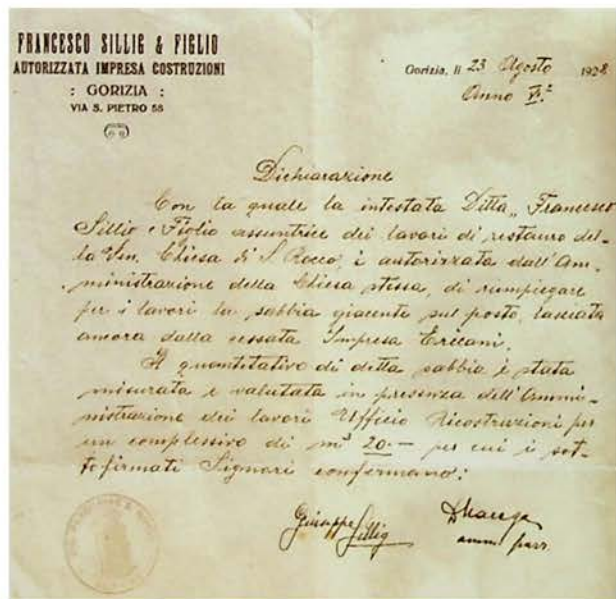 FRANCESCO SILLIG & FIGLIO
AUTORIZZATA IMPRESA COSTRUZIONI
: GORIZIA :
VIA S. PIETRO 58
Gorizia, li 23 Agosto 1928
Anno
Dichiarazione
Con la quale la intestata Ditta „Francesco
Sillig e Figlio assuntrice dei lavori di restauro del-
la Ven. Chiesa di S. Rocco, è autorizzata dall'Am-
ministrazione della Chiesa stessa, di rimpiegare
per i lavori la sabbia giacente sul posto, lasciata
ancora dalla cessata Impresa Ericani.
Il quantitativo di detta sabbia è stata
misurata e valutata in presenza dell'Ammi-
nistrazione dei lavori Ufficio Ricostruzioni per
un complessivo di m³ 20.— per cui i sot-
tofirmati Signori confermano:
Giuseppe Sillig
amm parr.